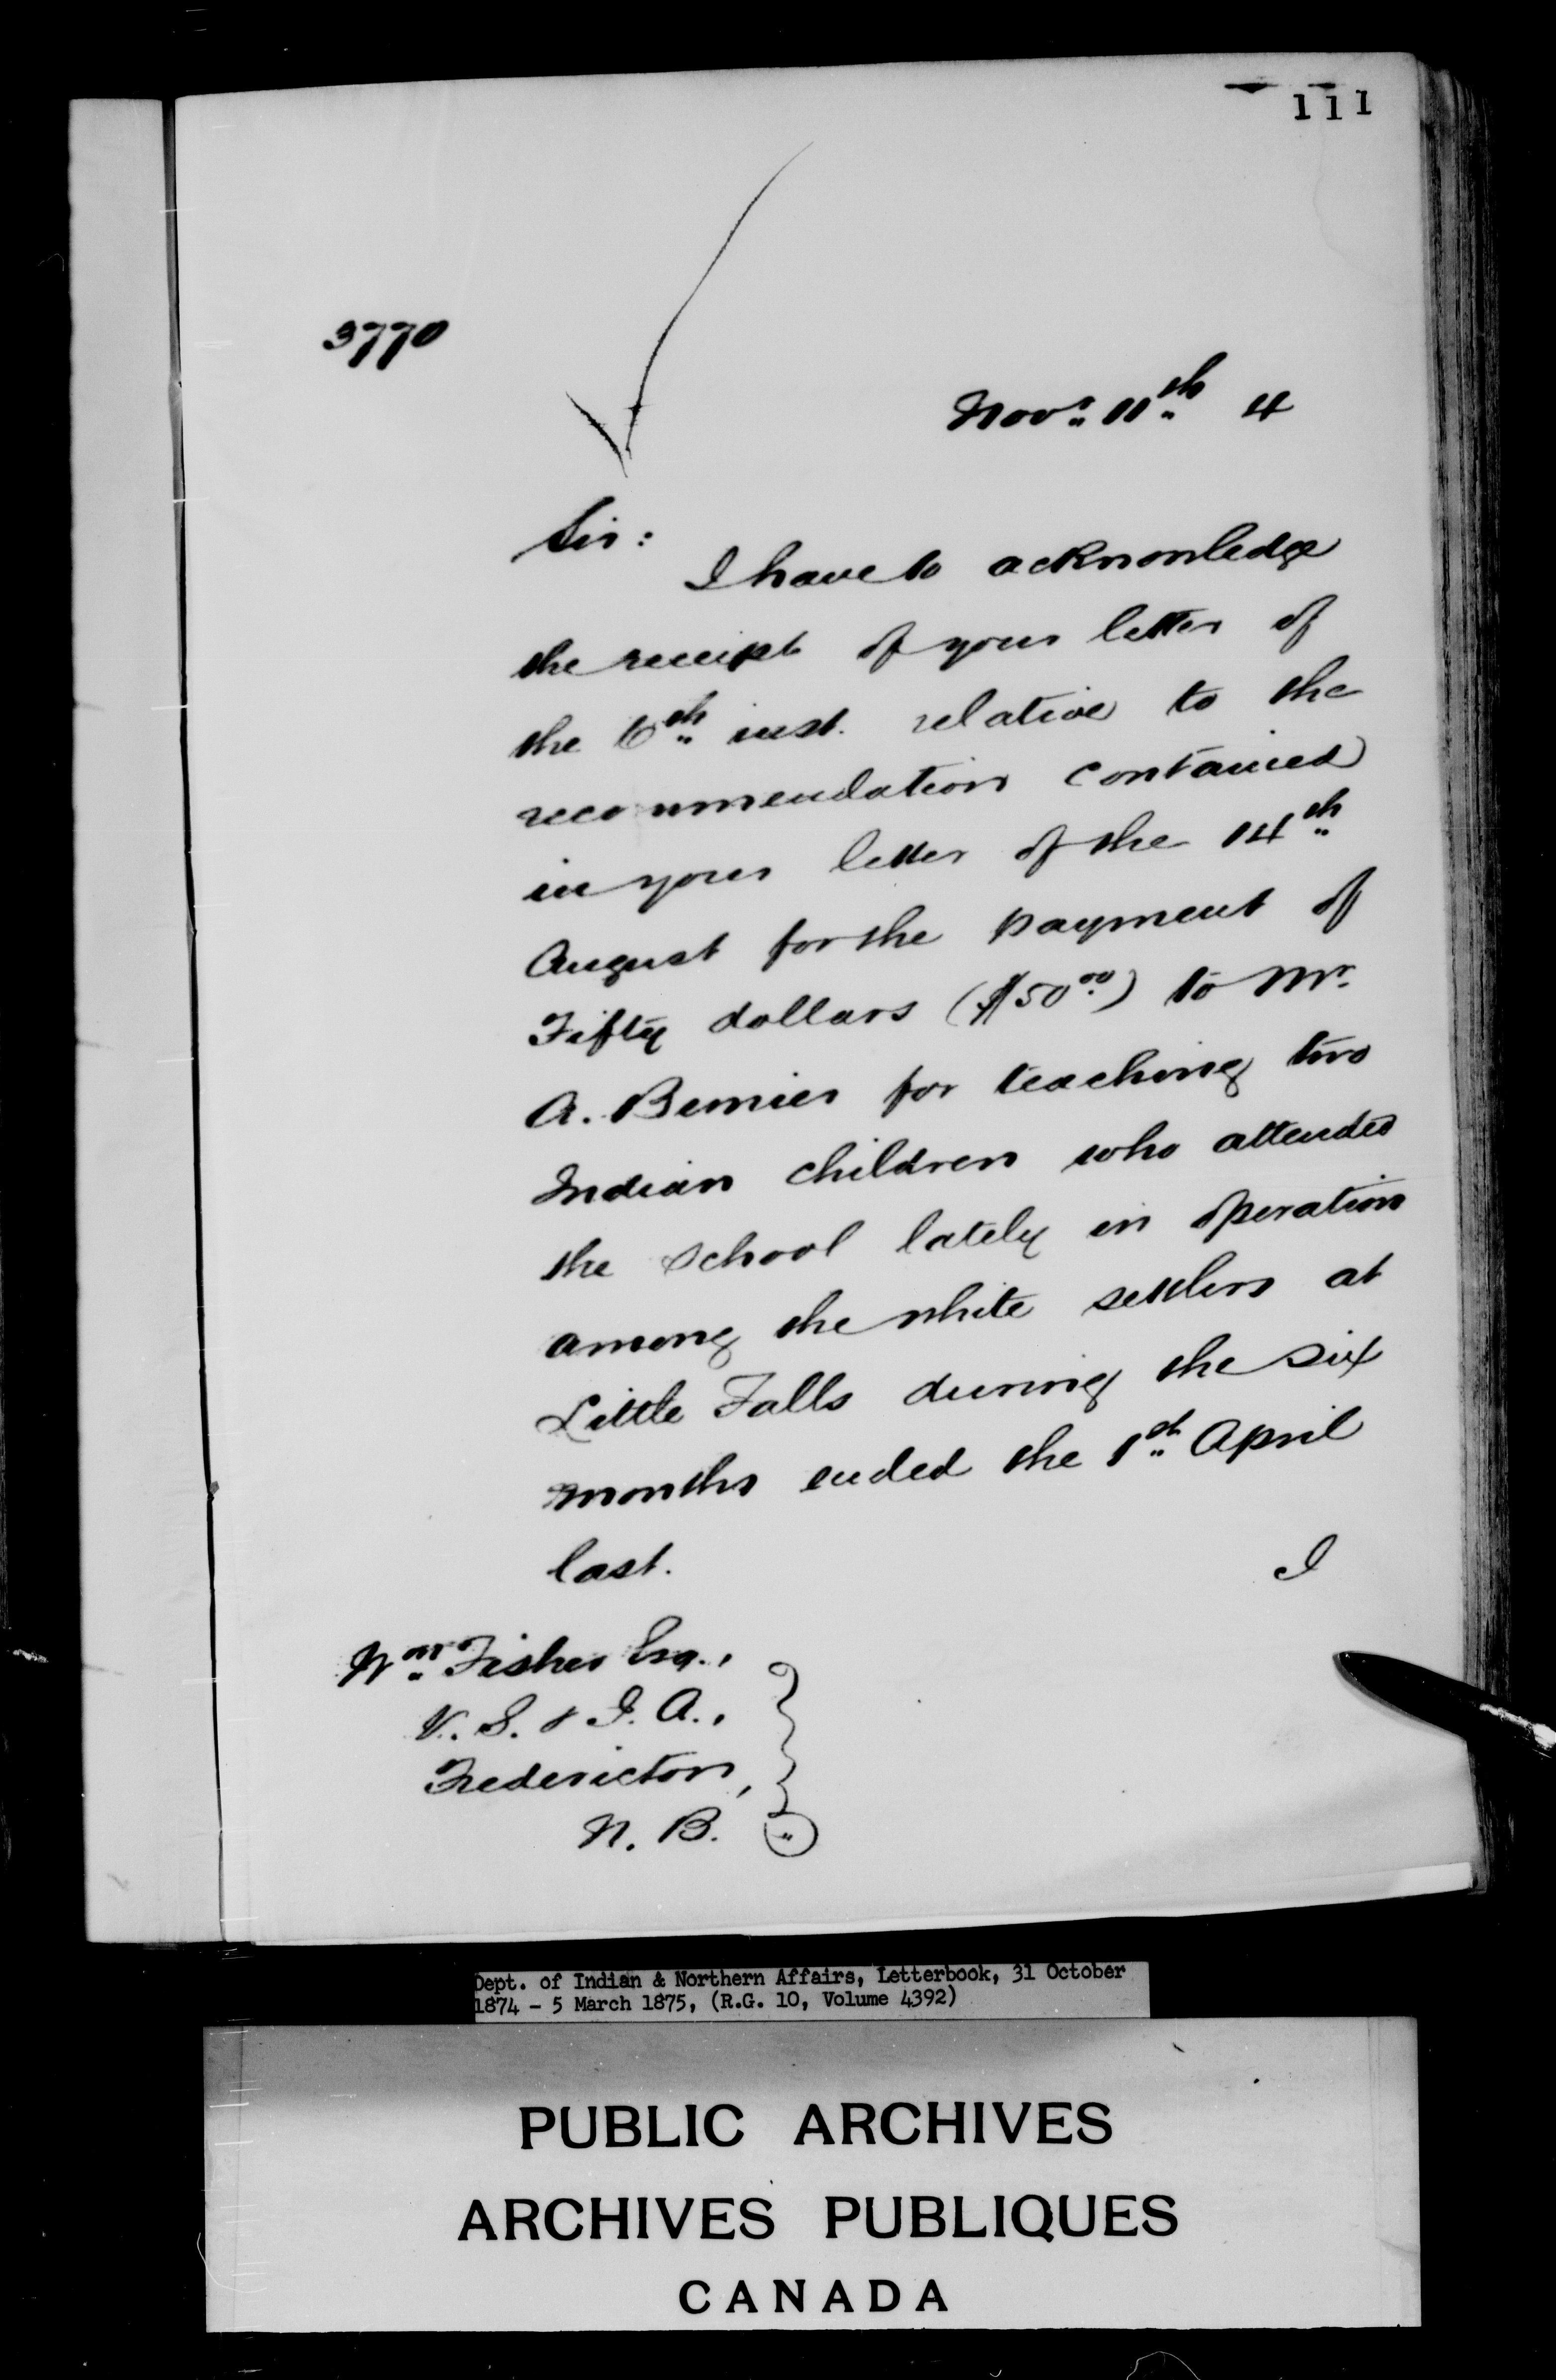 111
3770
Novr. 11th 4
Sir:
I have to acknowledge
the receipt of your letter of
the 6th inst. relative to the
recommendation contained
in your letter of the 14th
August for the payment of
Fifty dollars ($50.00) to Mr.
A. Bernier for teaching two
Indian children who attended
the School lately in operation
among the white settlers at
Little Falls during the six
months ended the 1st April
last.
I
Wm. Fisher Esq.,
V. S. & I. A.,
Fredericton,
N. B.
Dept. of Indian & Northern Affairs, Letterbook, 31 October
1874 - 5 March 1875, (R.G. 10, Volume 4392)
PUBLIC ARCHIVES
ARCHIVES PUBLIQUES
CANADA